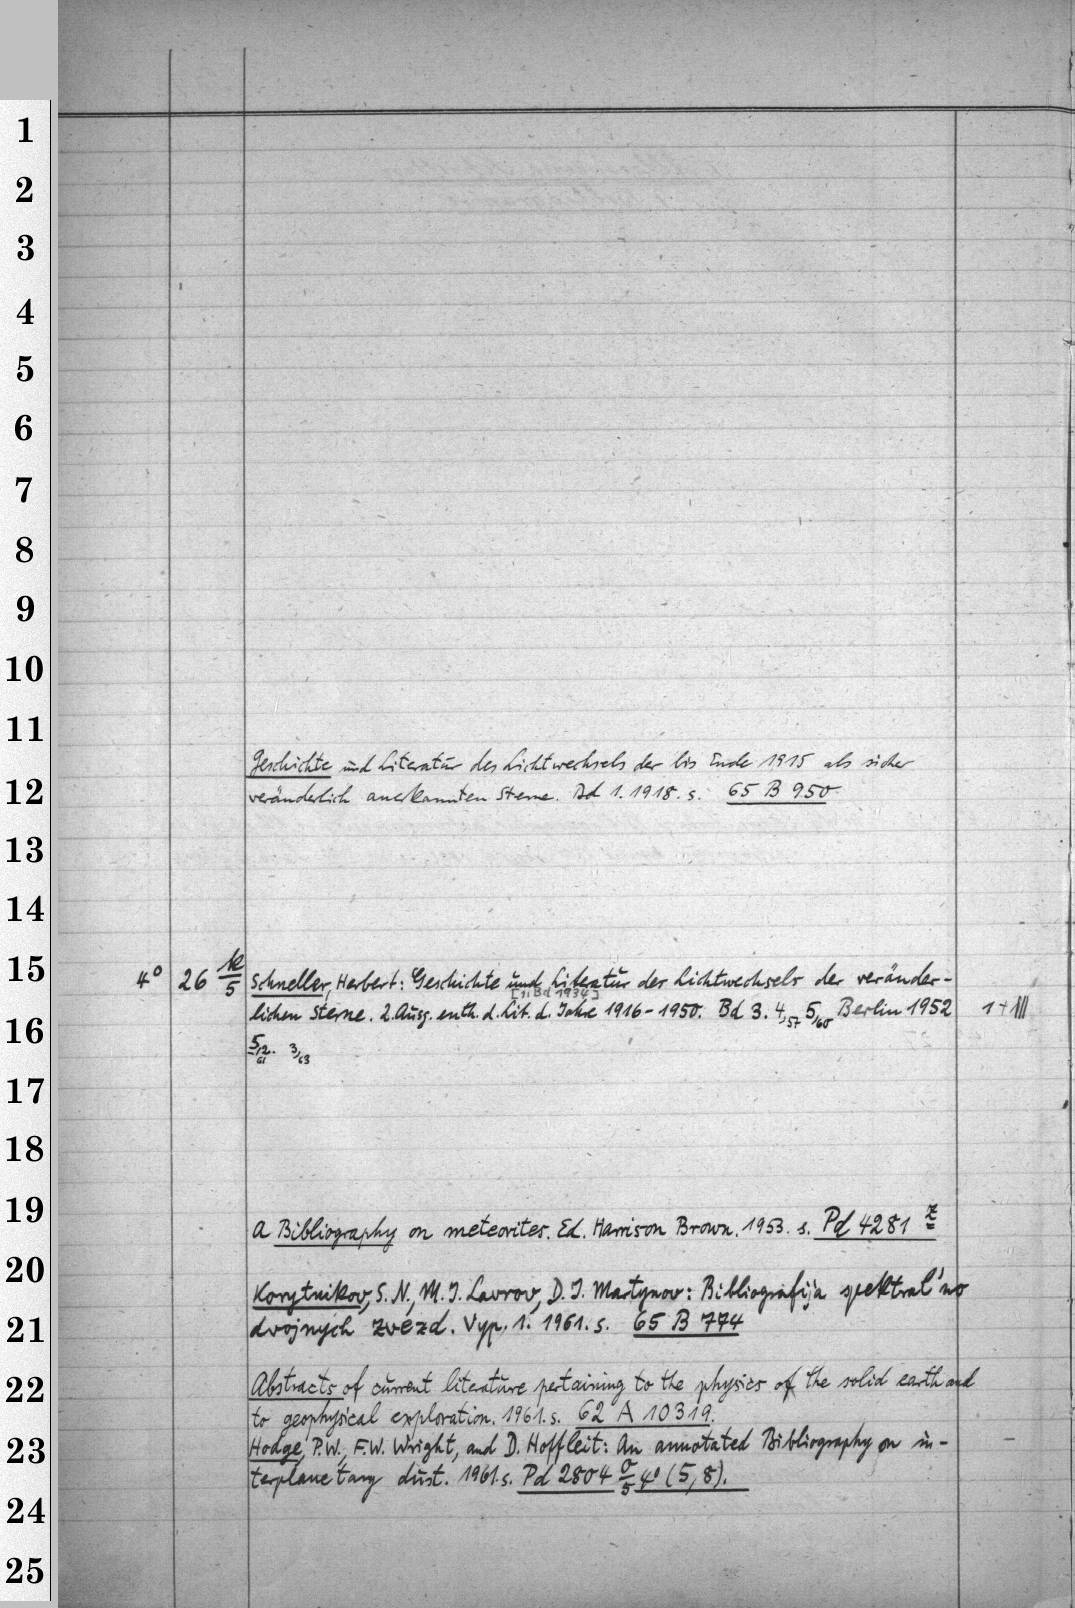 1
2
3
4
5
6
7
8
9
10
11
Geschichte und Literatur des Lichtwechsels der bis Ende 1915 als sicher
12
veränderlich anerkannten Sterne. Bd 1. 1918. s. 65 B 950
13
14
15
4° 26 k/5 Schneller, Herbert: Geschichte und Literatur des Lichtwechsels der veränder-
[1: Bd 1934]
lichen Sterne. 2. Ausg. enth. d. Lit. d. Jahre 1916-1950. Bd 3. 4,57 5,60 Berlin 1952 1+III
16
5,2. 61 3/63
17
18
19
A Bibliography on meteorites. Ed. Harrison Brown. 1953. s. Pd 4281 z
20
Korytnikov, S. N., M. I. Lavrov, D. I. Martynov: Bibliografija spektral'no
21
dvojnych zvezd. Vyp. 1. 1961. s. 65 B 774
22
Abstracts of current literature pertaining to the physics of the solid earth and
to geophysical exploration. 1961. s. 62 A 10319.
23
Hodge, P.W., F.W. Wright, and D. Hoffleit: An annotated Bibliography on in-
terplanetary dust. 1961. s. Pd 2804 o/5 4° (5,8).
24
25